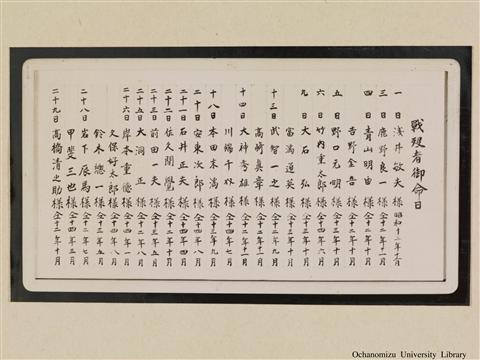 戦歿者御命日
一日 浅井敏夫様 昭和十二年十一月
三日 鹿野良一様 仝十二年十一月
四日 青山明由様 仝十二年十月
吉野金吾様 仝十二年十月
五日 野口元明様 仝十三年十月
六日 竹内重太郎様 仝十四年六月
九日 大石弘様 仝十三年十月
富満通英様 仝十三年十月
十三日 武智一之様 仝十二年九月
高崎真章様 仝十二年十一月
十四日 大神秀雄様 仝十二年十一月
川端千奴様 仝十四年七月
十八日 本田末満様 仝十三年九月
二十日 安東次郎様 仝十三年六月
二十一日 石井正夫様 仝十四年四月
二十二日 佐久間覺様 仝十二年十月
二十三日 前田一夫様 仝十三年五月
二十五日 大洞正様 仝十二年八月
二十六日 岸本重億様 仝十四年一月
久保好太郎様 仝十二年八月
鈴木總一様 仝十三年五月
二十八日 岩下辰馬様 仝十二年七月
甲斐三也様 仝十四年三月
二十九日 高橋清之助様 仝十三年十月
Ochanomizu University Library